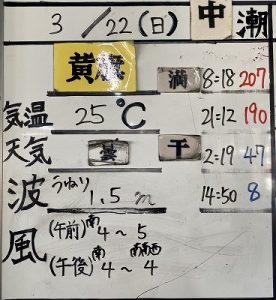 3／22(日) 中潮
黄砂 満 8:18 207
気温 25℃ 21:12 190
天気 曇 干 2:19 47
波 うねり 1.5m 14:50 8
風 (午前)南 4〜5
(午後)南 4〜南南西 4